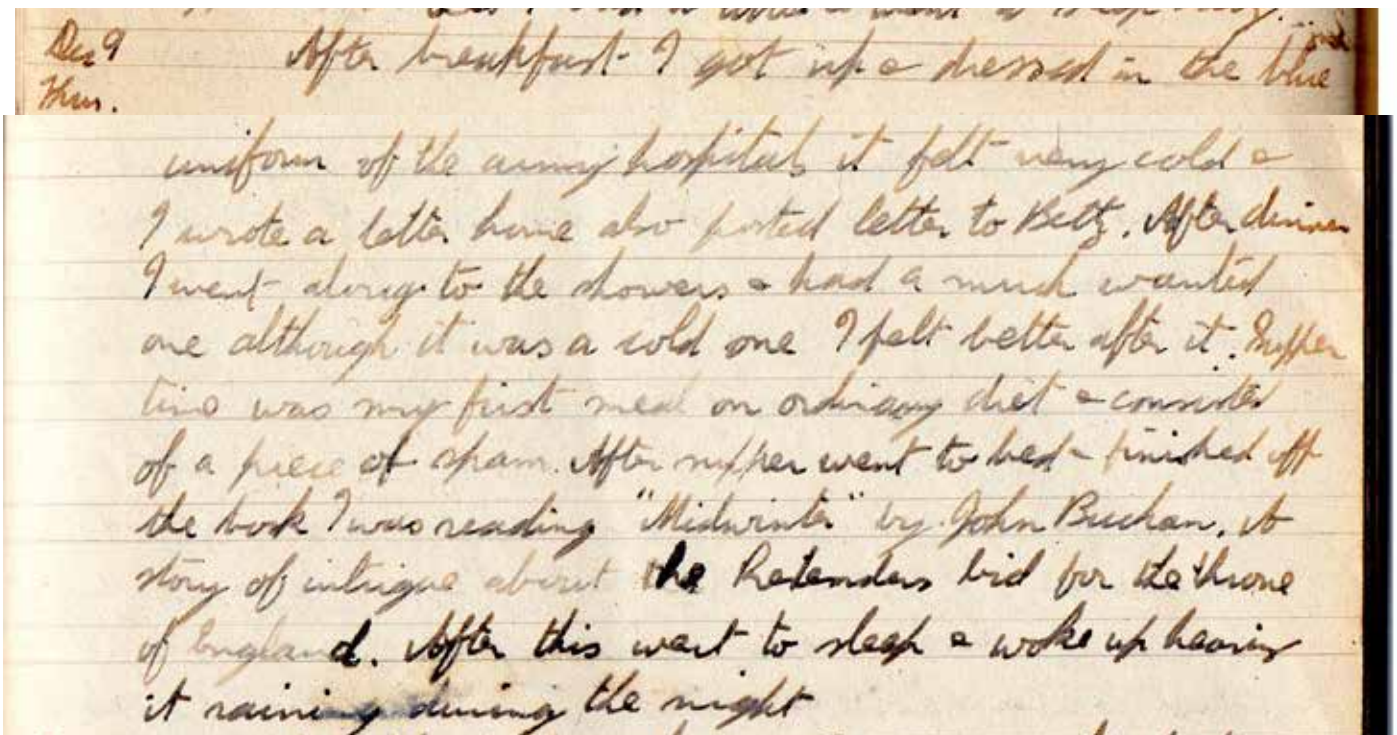 Dec 9 After breakfast I got up & dressed in the blue
Thur.
uniform of the army hospital, it felt very cold &
I wrote a letter home also posted letter to Betty. After dinner
I went along to the showers & had a much wanted
one although it was a cold one I felt better after it. Supper
time was my first meal on ordinary diet & consisted
of a piece of spam. After supper went to bed & finished off
the book I was reading "Midwinter" by John Buchan. A
story of intrigue about the Pretenders bid for the throne
of England. After this went to sleep & woke up hearing
it raining during the night